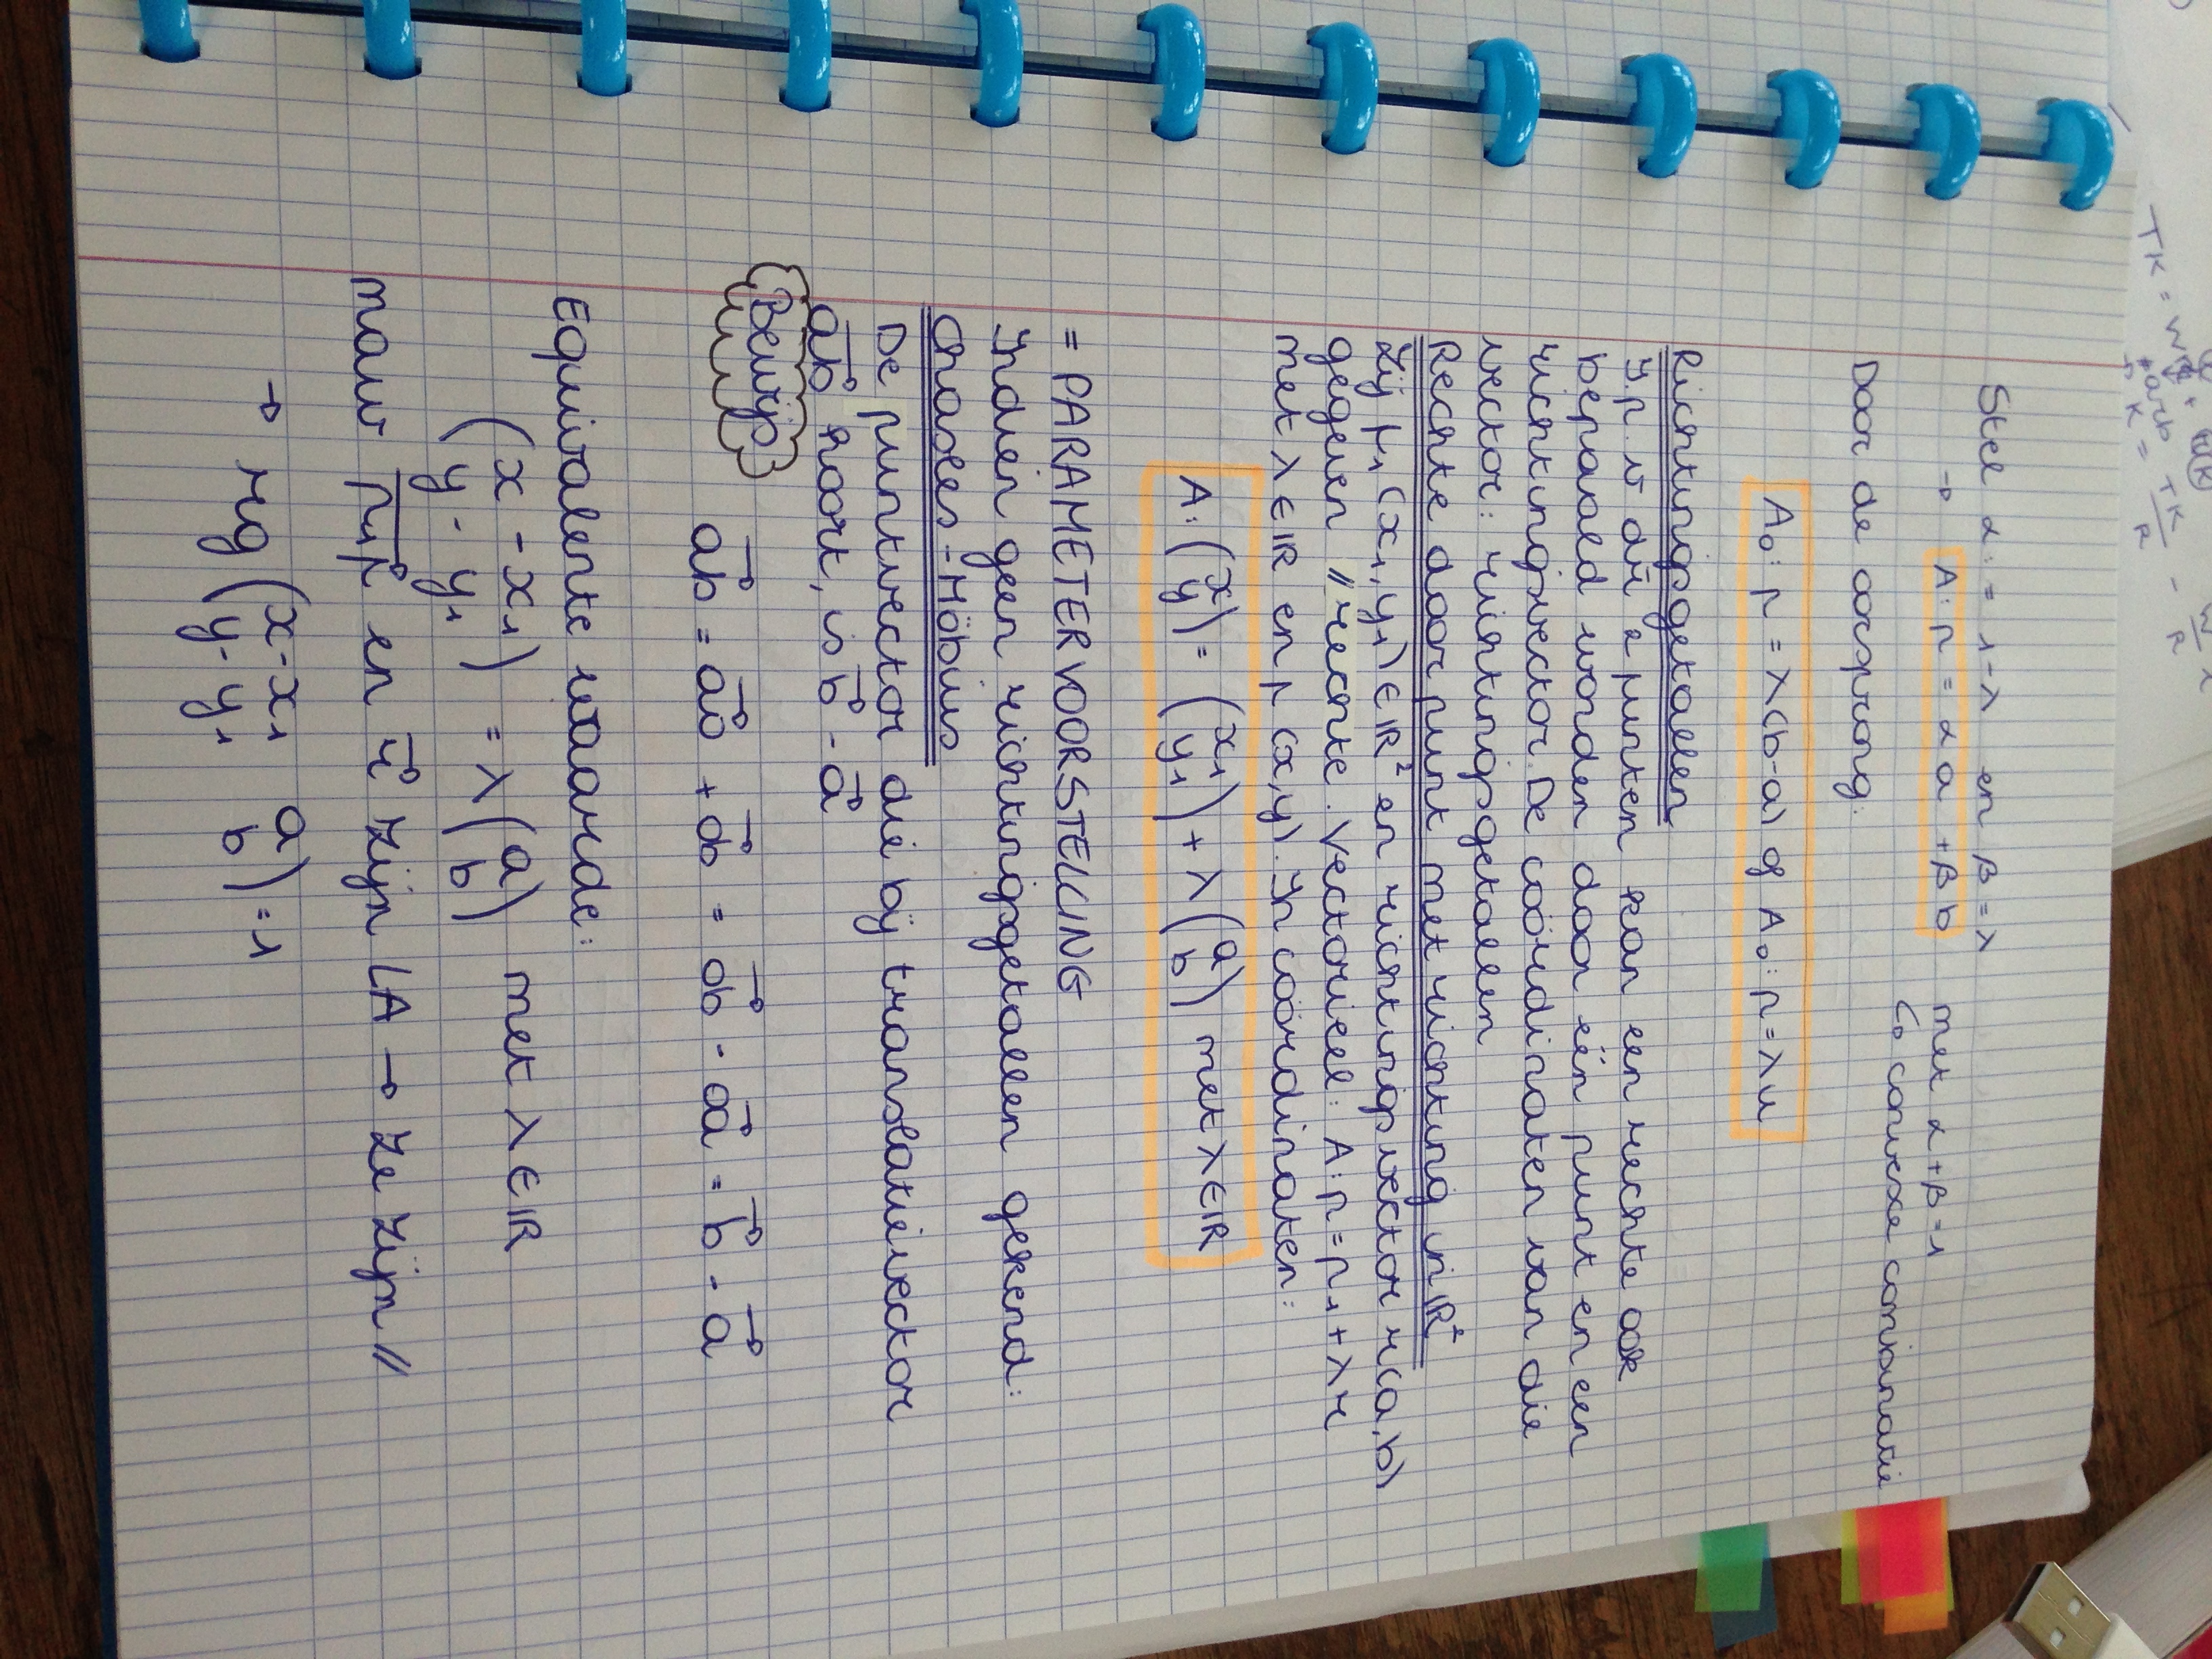 Stel α := 1-λ en β = λ
→ A: p = αa + βb met α+β = 1
↳ convexe combinatie
Door de oorsprong:
A₀: p = λ(b-a) of A₀: p = λu
Richtingsgetallen
I.p.v. die 2 punten kan een rechte ook
bepaald worden door één punt en een
richtingsvector. De coördinaten van die
vector: richtingsgetallen
Rechte door punt met richting in ℝ²
Zij p₁ (x₁, y₁) ∈ ℝ² en richtingsvector r(a,b)
gegeven // rechte. Vectorieel: A: p = p₁ + λr
met λ ∈ ℝ en p(x,y). In coördinaten:
A: (x y) = (x₁ y₁) + λ (a b) met λ ∈ ℝ
= PARAMETERVOORSTELLING
Indien geen richtingsgetallen gekend:
Chasles-Möbius
De puntvector die bij translatievector
ab hoort, is b - a
Bewijs
ab = ao + ob = ob - oa = b - a
Equivalente waarde:
(x - x₁ y - y₁) = λ (a b) met λ ∈ ℝ
maw p₁p en r zijn LA → ze zijn //
→ rg (x-x₁ a y-y₁ b) = 1
TK =